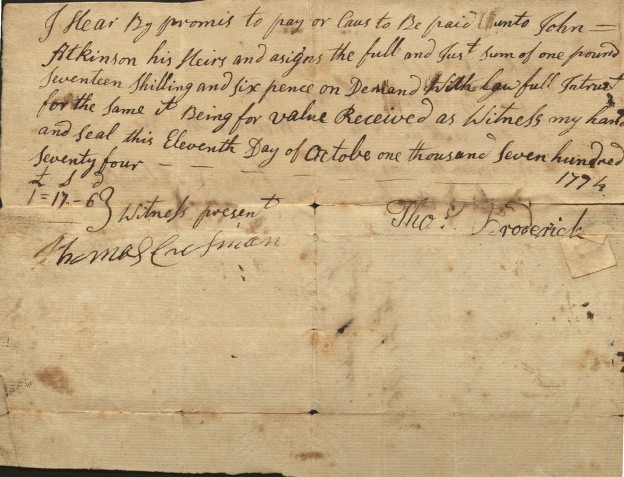 I Hear By promis to pay or Caus to Be paid unto John =
Atkinson his Heirs and asigns the full and Just sum of one pound
Seventeen Shilling and six pence on Demand With Lawfull Intrust
for the same it Being for value Received as Witness my hand
and seal this Eleventh Day of Octobe one thousand seven hundred
Seventy four — — — — — — 1774
£ S d
1 = 17 - 6 } Witness present
Thos. Broderick
Thomas Cresman